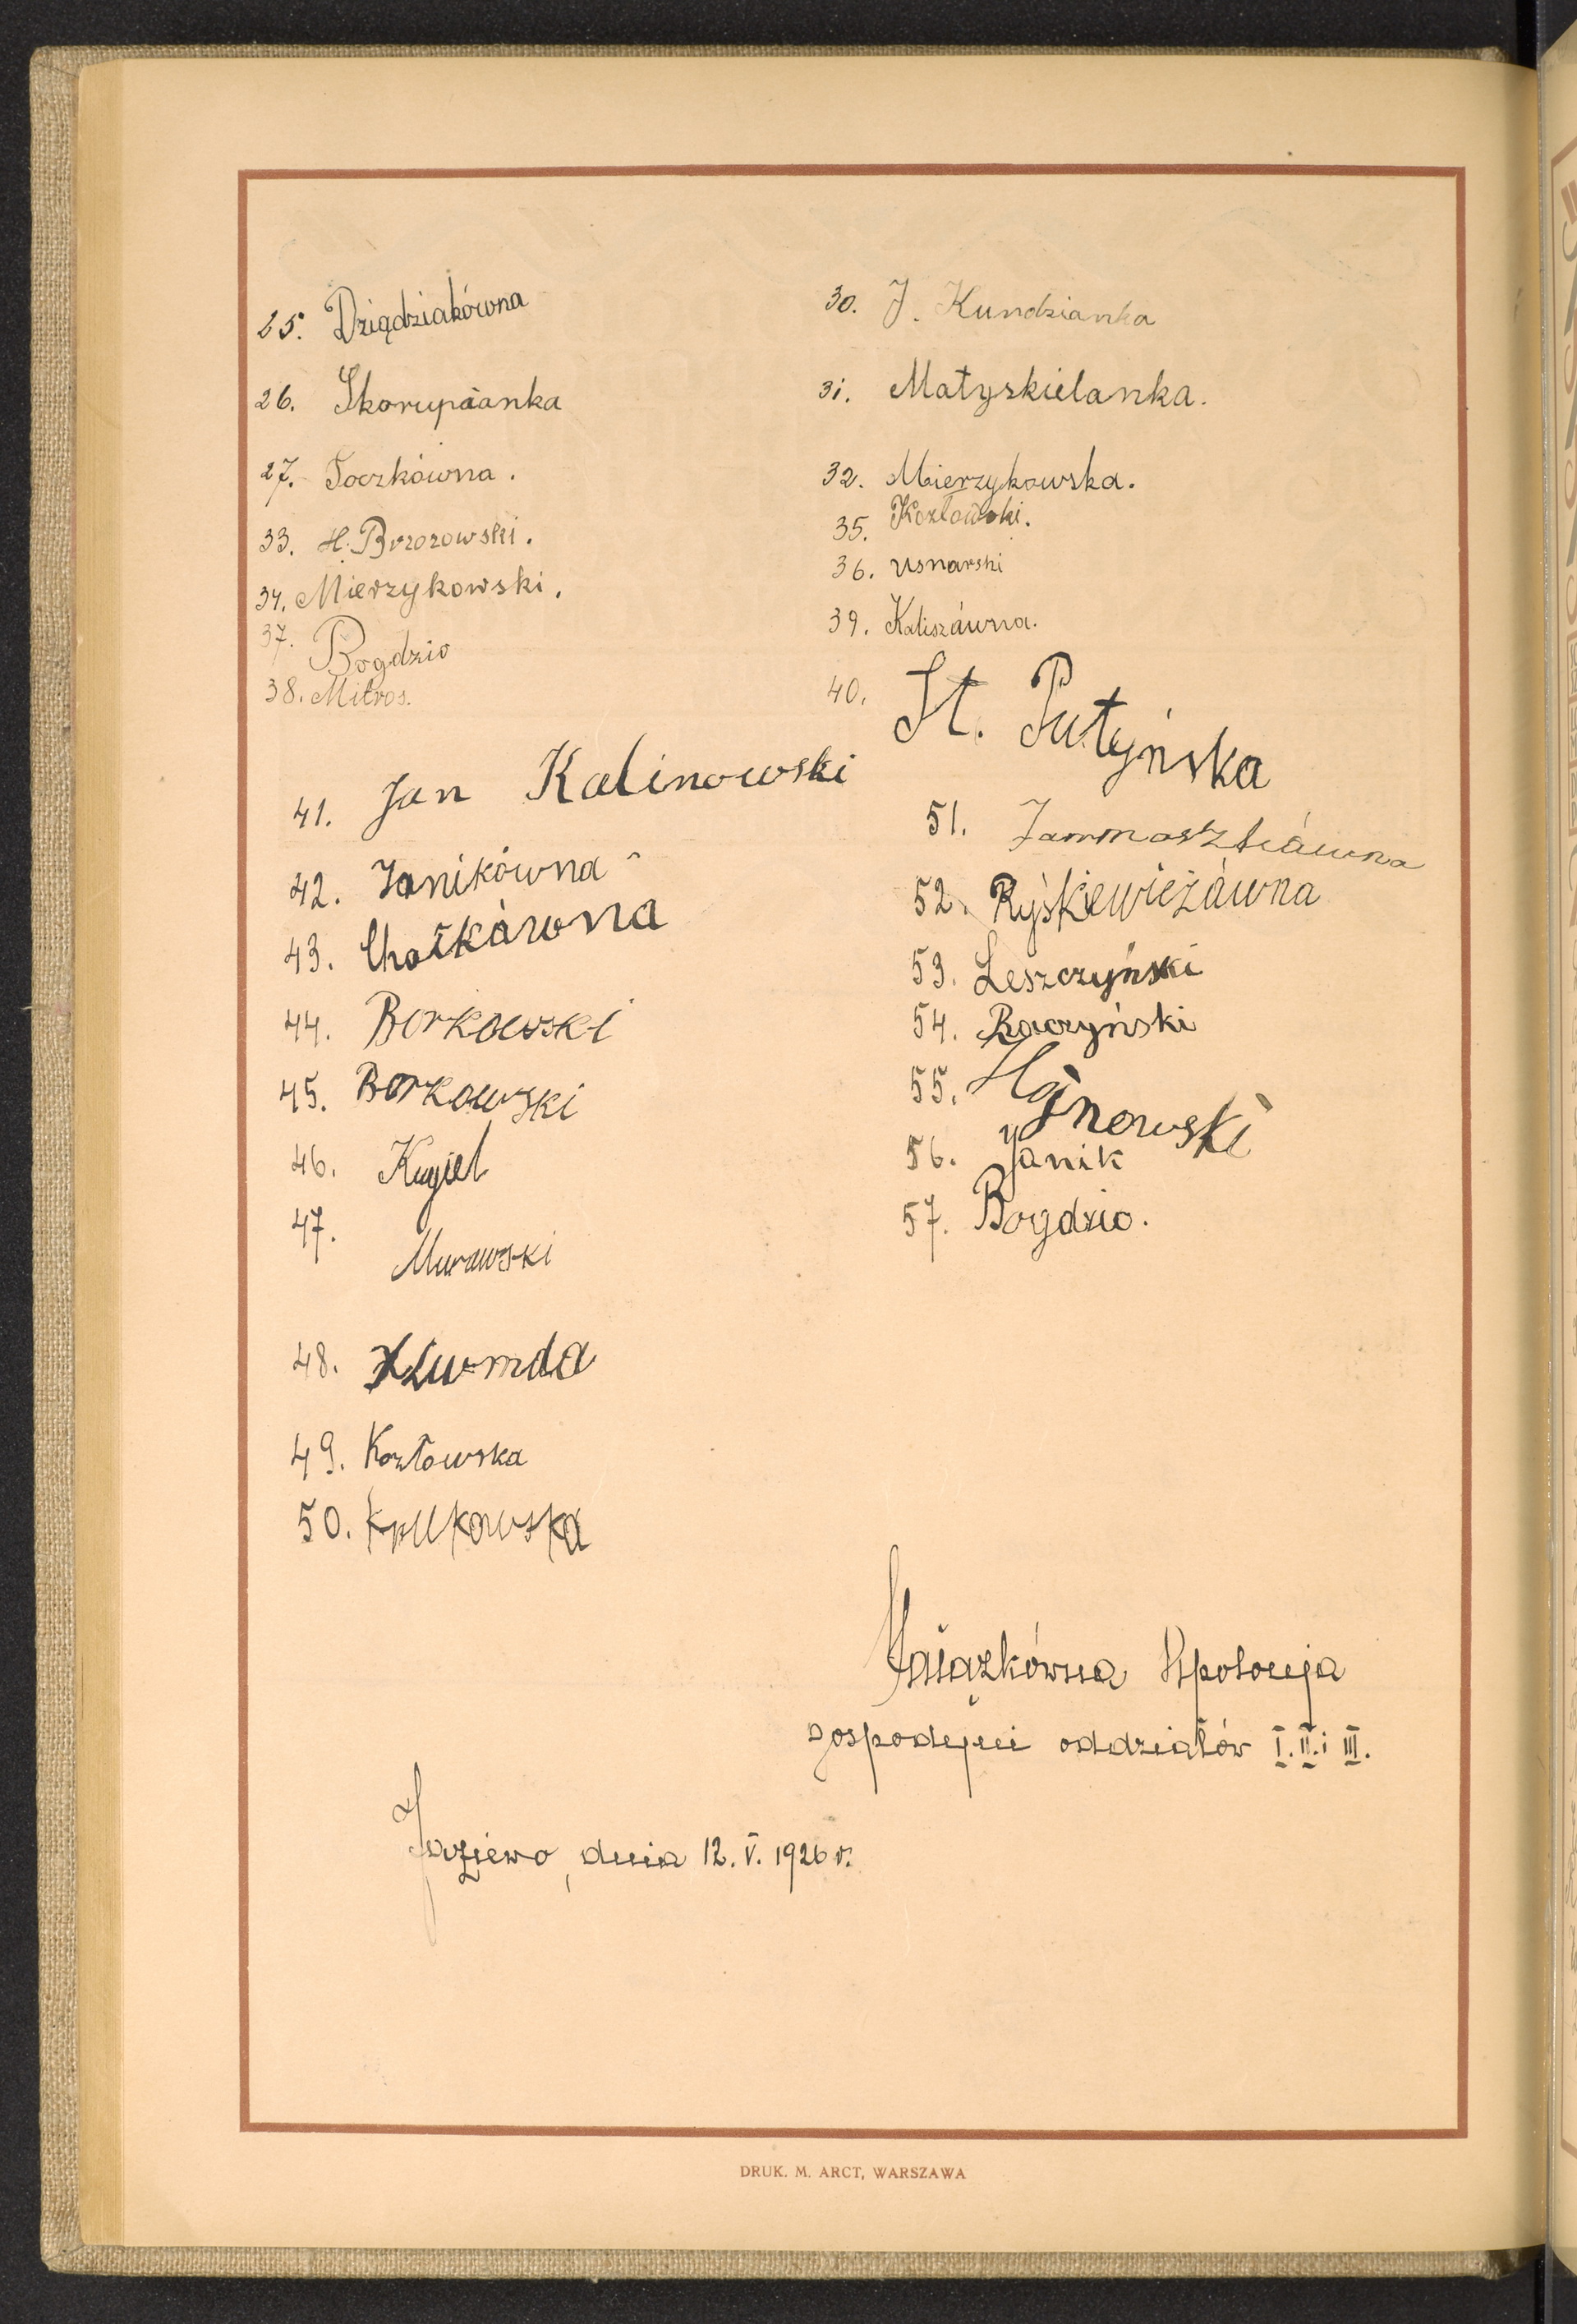 25. Dziądziakówna
26. Skorupianka
27. Toczkówna.
33. H. Brzozowski.
34. Mierzykowski.
37. Bogdzio
38. Mitros.
30. J. Kundzianka
31. Matyskielanka.
32. Mierzykowska.
35. Kozłowski.
36. Usnarski
39. Kaliszówna.
40. St. Putyńska
41. Jan Kalinowski
42. Janikówna
43.
44. Borkowski
45. Borkowski
46. Kugiel
47. Murawski
48.
49. Kozłowska
50. Krukowska
51.
52. Ryśkiewiczówna
53. Leszczyński
54. Raczyński
55. Hajnowski
56. Janik
57. Bogdzio.
Książkówna Apolonja
gospodyni oddziałów I. II. i III.
Jaziewo, dnia 12. V. 1926 r.
DRUK. M. ARCT, WARSZAWA